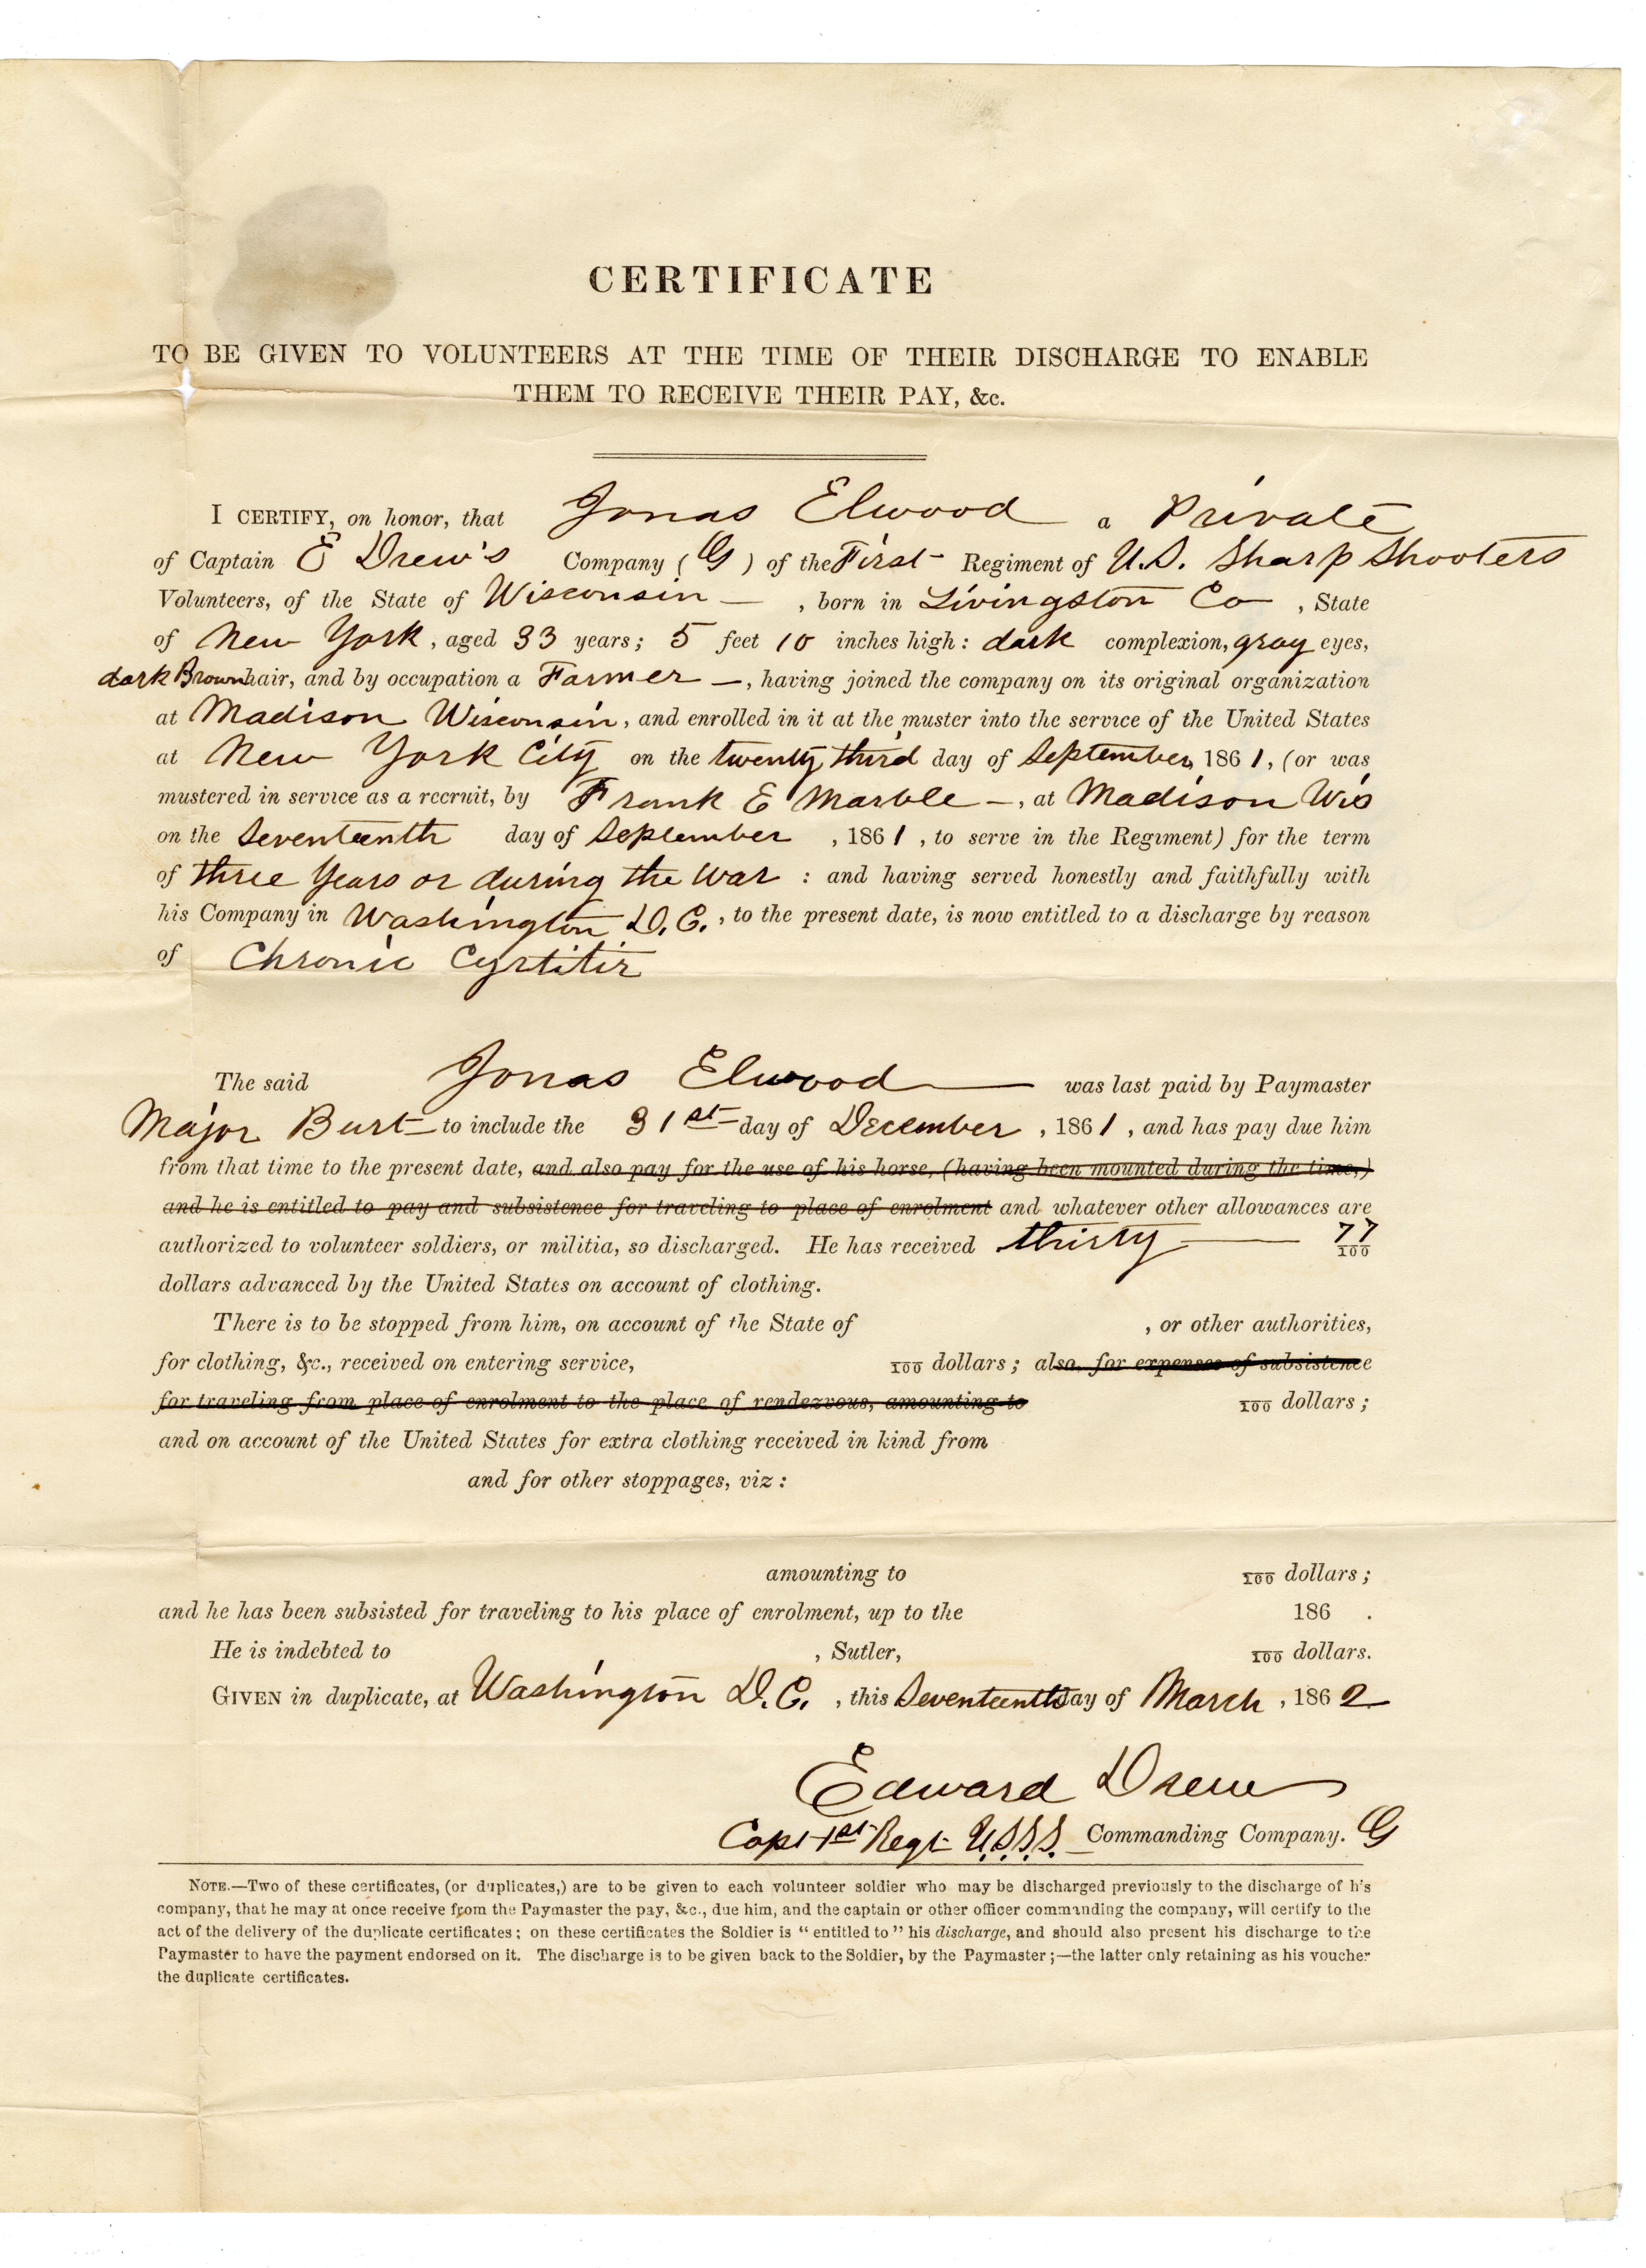 CERTIFICATE
TO BE GIVEN TO VOLUNTEERS AT THE TIME OF THEIR DISCHARGE TO ENABLE
THEM TO RECEIVE THEIR PAY, &c.
I CERTIFY, on honor, that Jonas Elwood a Private
of Captain E Drew's Company (G) of the First Regiment of U.S. Sharp Shooters
Volunteers, of the State of Wisconsin —, born in Livingston Co, State
of New York, aged 33 years; 5 feet 10 inches high: dark complexion, gray eyes,
dark Brown hair, and by occupation a Farmer —, having joined the company on its original organization
at Madison Wisconsin, and enrolled in it at the muster into the service of the United States
at New York City on the twenty third day of September, 1861, (or was
mustered in service as a recruit, by Frank E Marble —, at Madison Wis
on the Seventeenth day of September, 1861, to serve in the Regiment) for the term
of three Years or during the War : and having served honestly and faithfully with
his Company in Washington D.C., to the present date, is now entitled to a discharge by reason
of Chronic Cystitis
The said Jonas Elwood was last paid by Paymaster
Major Burt to include the 31st day of December, 1861, and has pay due him
from that time to the present date, and also pay for the use of his horse, (having been mounted during the time,)
and he is entitled to pay and subsistence for traveling to place of enrolment and whatever other allowances are
authorized to volunteer soldiers, or militia, so discharged. He has received thirty — 77/100
dollars advanced by the United States on account of clothing.
There is to be stopped from him, on account of the State of , or other authorities,
for clothing, &c., received on entering service, 100 dollars; also, for expenses of subsistence
for traveling from place of enrolment to the place of rendezvous, amounting to 100 dollars;
and on account of the United States for extra clothing received in kind from
and for other stoppages, viz:
amounting to 100 dollars;
and he has been subsisted for traveling to his place of enrolment, up to the 186 .
He is indebted to , Sutler, 100 dollars.
GIVEN in duplicate, at Washington D.C., this Seventeenth day of March, 1862
Edward Drew
Capt 1st Regt U.S.S.S. Commanding Company. G
NOTE.—Two of these certificates, (or duplicates,) are to be given to each volunteer soldier who may be discharged previously to the discharge of his
company, that he may at once receive from the Paymaster the pay, &c., due him, and the captain or other officer commanding the company, will certify to the
act of the delivery of the duplicate certificates; on these certificates the Soldier is "entitled to" his discharge, and should also present his discharge to the
Paymaster to have the payment endorsed on it. The discharge is to be given back to the Soldier, by the Paymaster;—the latter only retaining as his voucher
the duplicate certificates.